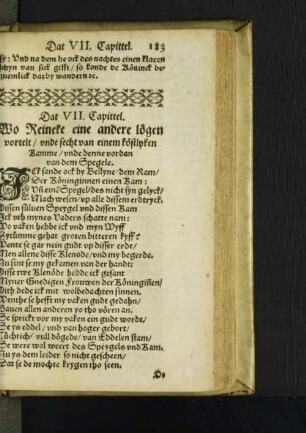 Dat VII. Capittel. 183
sy: Und na dem he ock des nachtes einen klaren
schyn van sick gifft/ so konde de Köninck be-
quemlick darby wandern ꝛc.
Dat VII. Capittel.
Wo Reineke eine andere lögen
vortelt/ vnde secht van einem köstlyken
Kamme/ vnde denne vordan
van dem Spegele.
Ick sande ock by Bellyne dem Ram/
Der Köninginnen einen Kam:
Uñ ein Spegel/ des nicht syn gelyck/
Mach wesen/ vp alle dissem erdtryck.
Dissen süluen Speygel vnd dissen Kam
Ick vth mynes Vaders schatte nam:
Wo vaken hebbe ick vnd myn Wyff
Hyrümme gehat groten bitteren kyff?
Wente se gar nein gudt vp disser erde/
Men allene disse Klenode/ vnd my begerde.
Nu sint se my gekamen van der handt;
Disse twe Klenöde hedde ick gesant
Myner Gnedigen Frouwen der Köningiñen/
Dith dede ick mit wolbedachten sinnen.
Wenthe se hefft my vaken gudt gedahn/
Bauen allen anderen yo tho vören an.
Se sprickt vor my vaken ein gudt wordt/
Se ys eddel/ vnd van hoger gebort/
Tüchtich/ vull dögede/ van Eddelen stam/
Se were wol weert des Speygels vnd Kam.
Nu ys dem leider so nicht gescheen/
Dat se de mochte krygen tho seen.
De